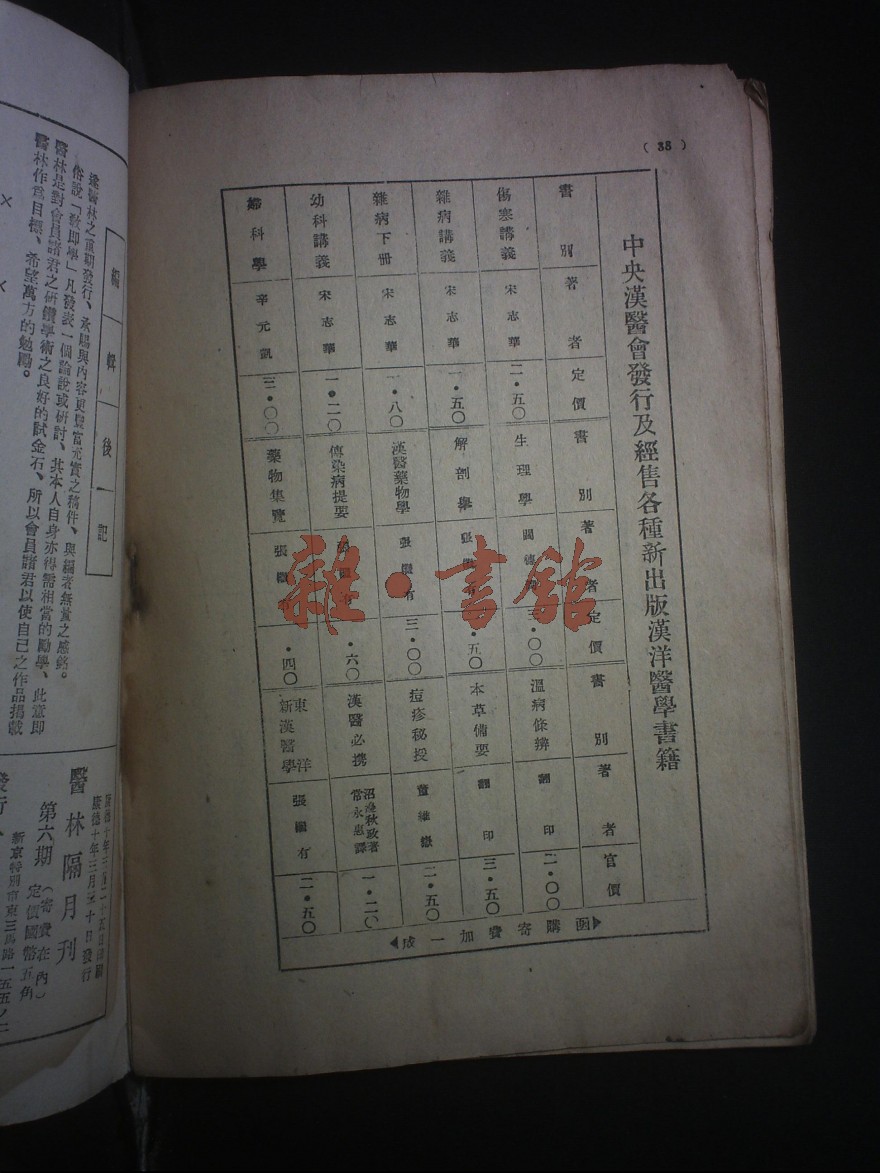 ( 38 )
中央漢醫會發行及經售各種新出版漢洋醫學書籍
書別 著者 定價 書別 著者 定價 書別 著者 官價
傷寒講義 宋志華 二・五〇 生理學 三・〇〇 溫病條辨 翻印 二・〇〇
雜病講義 宋志華 一・五〇 解剖學 張 ・五〇 本草備要 翻印 三・五〇
雜病下册 宋志華 一・八〇 漢醫藥物學 張繼有 三・〇〇 痘疹秘授 董維嶽 二・五〇
幼科講義 宋志華 一・二〇 傳染病提要 ・六〇 漢醫必携 常永惠譯 一・二〇
婦科學 辛元凱 三・〇〇 藥物集覽 張 ・四〇 東洋新漢醫學 張繼有 二・五〇
函購寄費加一成
雜・書館
編輯後記
俗說「教即學」凡發表一個論說或研討、其本人自身亦得需相當的勵學、此意即
醫林是對會員諸君之研鑽學術之良好的試金石、所以會員諸君以使自己之作品揭載
醫林作爲目標、希望萬方的勉勵。
康德十年三月三十日發行
醫林隔月刊
第六期 (寄費在內) 定價國幣五角
新京特別市東三馬路一五五ノ二
發行人